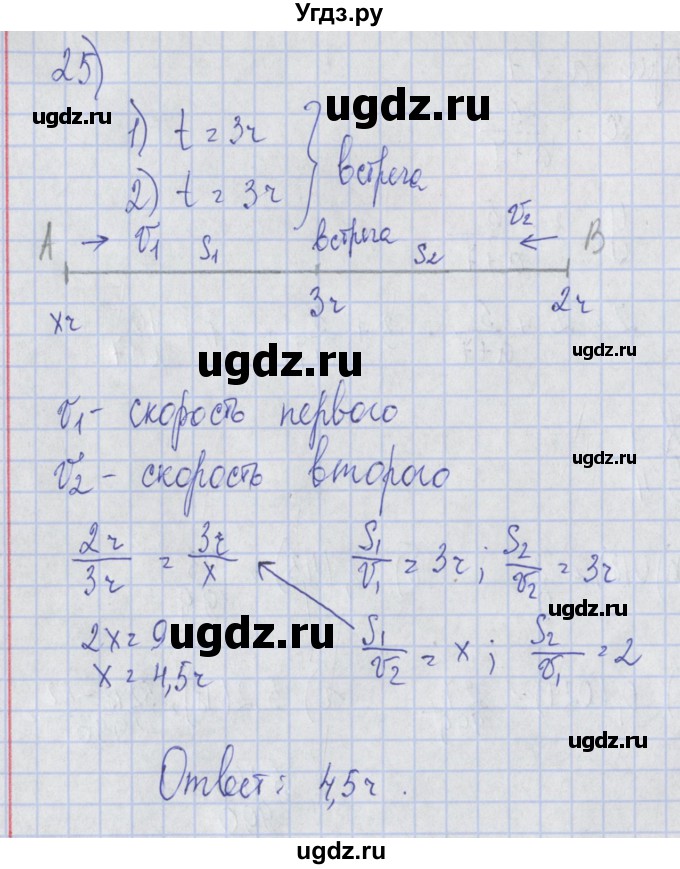 Угдз.ру
25)
ugdz.ru ugdz.ru
1) t = 3ч
2) t = 3ч } встреча
ugdz.ru ugdz.ru
A → v₁ S₁ встреча S₂ v₂ ← B
xч 3ч 2ч
ugdz.ru ugdz.ru
v₁ - скорость первого
v₂ - скорость второго
ugdz.ru ugdz.ru
2ч/3ч = 3ч/x S₁/v₁ = 3ч; S₂/v₂ = 3ч
ugdz.ru
2x = 9 ugdz.ru S₁/v₂ = x; S₂/v₁ = 2
x = 4,5ч
ugdz.ru ugdz.ru
Ответ: 4,5ч.
ugdz.ru